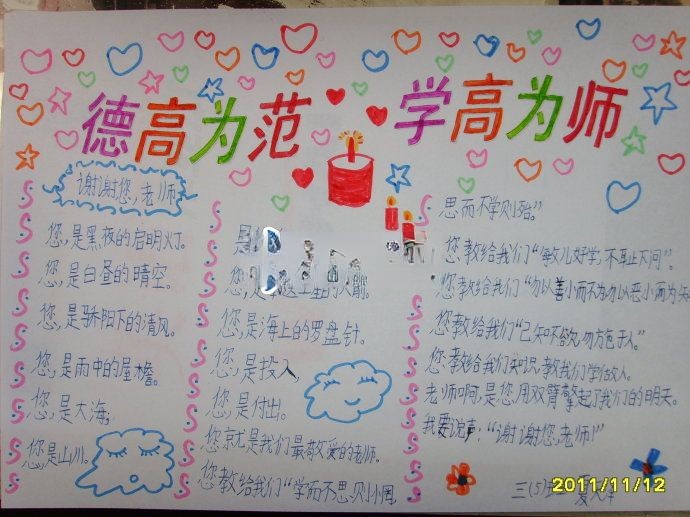 德高为范 学高为师
谢谢您,老师
您,是黑夜的启明灯。
您,是白昼的晴空。
您,是骄阳下的清风。
您,是雨中的屋檐。
您,是大海,
您是山川。
您,是海上的罗盘针。
您,是投入,
您,是付出。
您就是我们最敬爱的老师。
您教给我们“学而不思则罔
思而不学则殆”。
您教给我们“敏儿好学,不耻下问”。
您教给我们“勿以善小而不为勿以恶小而为
您教给我们“己知不欲勿施于人”
您教给我们知识,教我们学做人。
老师啊,是您用双臂擎起了我们的明天。
我要说声:“谢谢您,老师!”
三(5)
2011/11/12